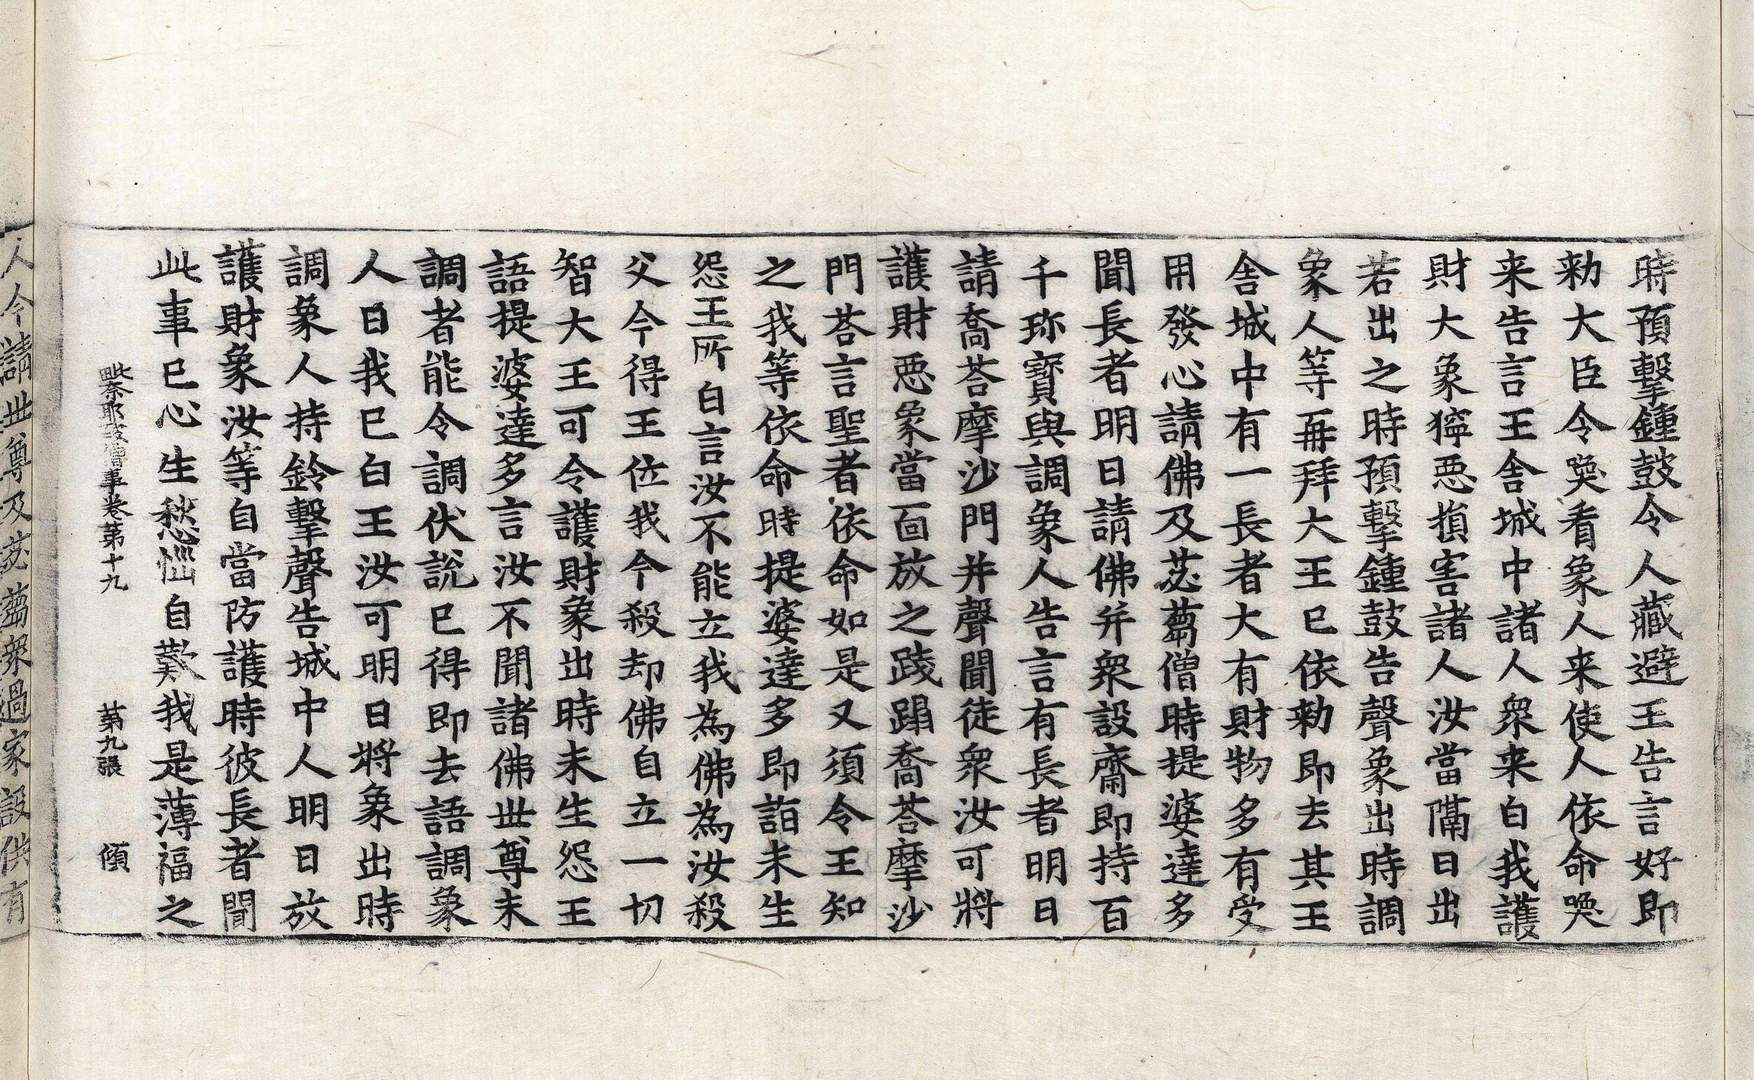 時預擊鍾鼓令人藏避王告言好即
勑大臣令喚看象人来使人依命喚
来告言王舍城中諸人衆来白我護
財大象獰惡損害諸人汝當隔日出
若出之時預擊鍾鼓告聲象出時調
象人等再拜大王已依勑即去其王
舍城中有一長者大有財物多有受
用發心請佛及苾蒭僧時提婆達多
聞長者明日請佛并衆設齋即持百
千珎寶與調象人告言有長者明日
請喬荅摩沙門并聲聞徒衆汝可將
護財惡象當面放之踐蹋喬荅摩沙
門荅言聖者依命如是又須令王知
之我等依命時提婆達多即詣未生
怨王所白言汝不能立我為佛為汝殺
父令得王位我今殺却佛自立一切
智大王可令護財象出時未生怨王
語提婆達多言汝不聞諸佛世尊未
調者能令調伏說已得即去語調象
人曰我已白王汝可明日將象出時
調象人持鈴擊聲告城中人明日放
護財象汝等自當防護時彼長者聞
此事已心生愁惱自歎我是薄福之
毗奈耶破僧事卷第十九 第九張 傾
人令請世尊及苾蒭衆過家設供有